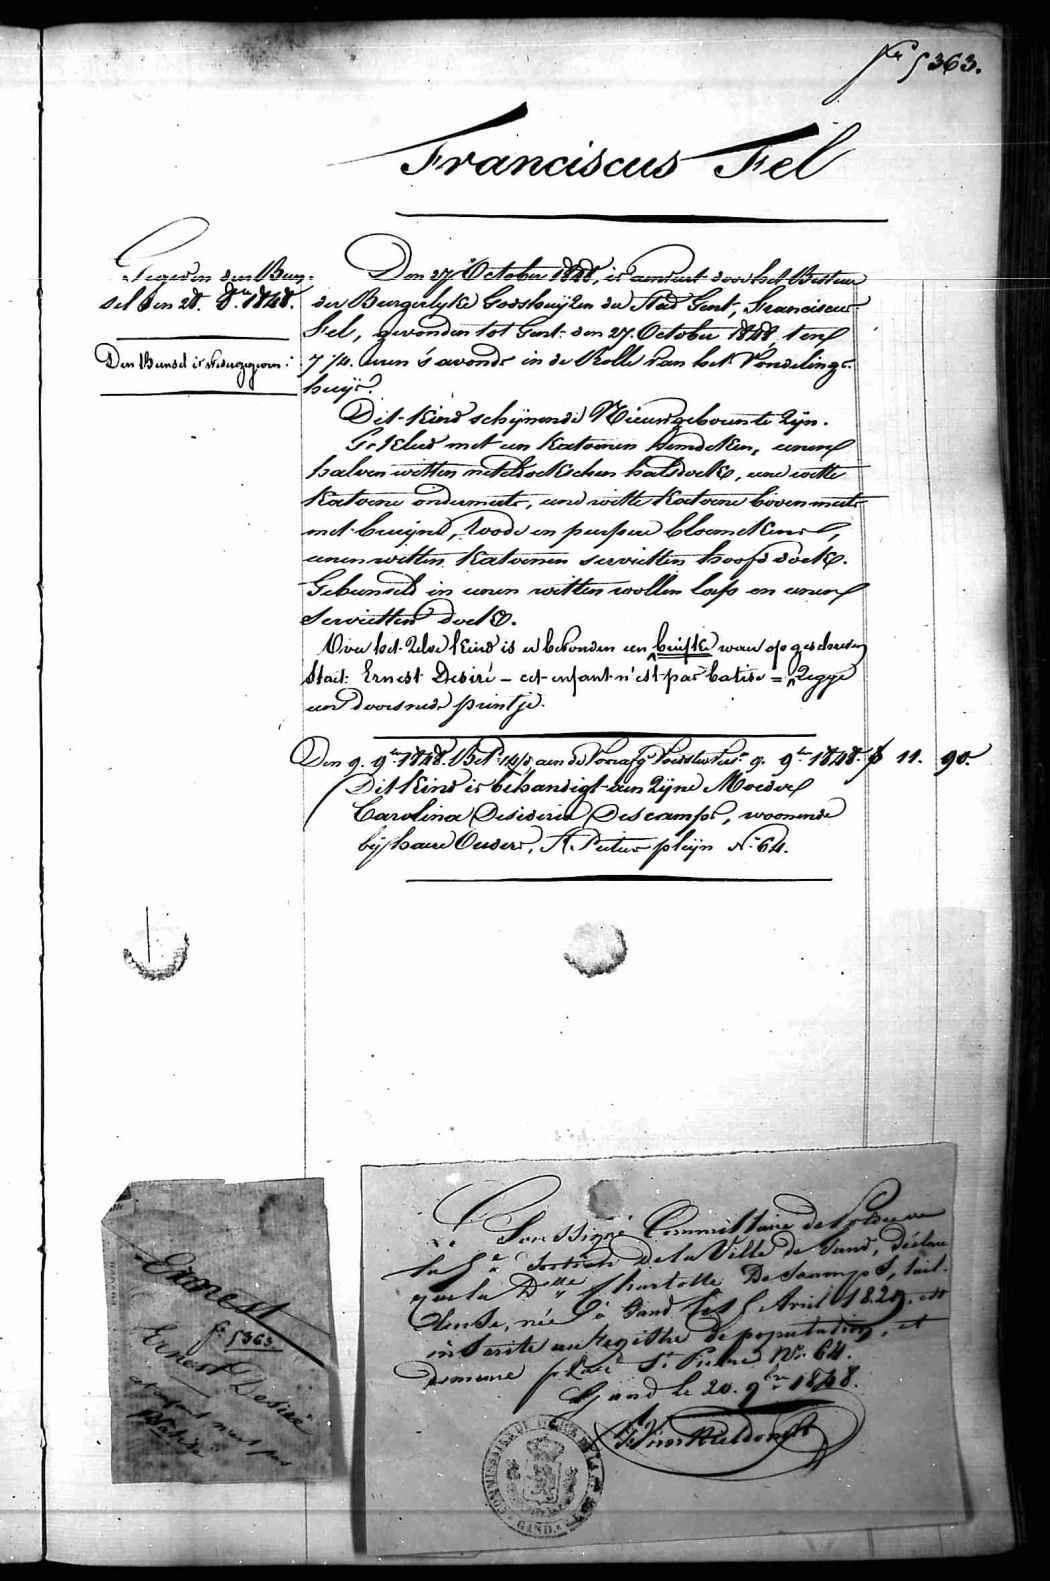 fo 5363.
Franciscus Fel
Gegeven den Bun-
sel den 28. 8bre 1848.
Den Bunsel is wedergegeven:
Den 27 October 1848, is aenveert door het Bestuur
der Burgerlyke Godshuyzen der Stad Gent, Franciscus
Fel, gevonden tot Gent den 27. October 1848, ten
7 1/4. uren s'avonds in de Rolle van het Vondelings-
huys.
Dit kind schynende Nieuwgeboren te zyn.
Gekleed met een katoenen hemdeken, eenen
halven witten neteldoekschen halsdoek, eene witte
katoene ondermuts, eene witte katoene bovenmuts
met bruyne, roode en purpere bloemekens,
eenen witten katoenen servietten hoofddoek.
Gebunseld in eenen witten wollen lap en eenen
servietten doek.
Over het zelve kind is er bevonden een briefke waer op geschreven
staet: Ernest Desiré – cet enfant n'est pas batisé = Zegge
een doorsnede printje.
Den 9. 9bre 1848. Bet. aen de Voedster 9. 9bre 1848. f 11. 90.
Dit kind is behandigt aen zyne Moeder
Carolina Desideria Descamps, woonende
by haere Ouders, St. Pieters pleyn No. 64.
Ernest
fo 5363
Ernest Desiré
cet enfant n'est pas
Batisé
Le Soussigné Commissaire de Police de
la 5e Section De la Ville de Gand, déclare
que la Dlle Charlotte Descamps, tail-
leuse, née à Gand le 5 Avril 1829. est
inscrite au registre de population, et
demeure place St Pierre No. 64.
Gand le 20. 9bre 1848.
COMMISSAIRE DE POLICE DE LA
GAND.